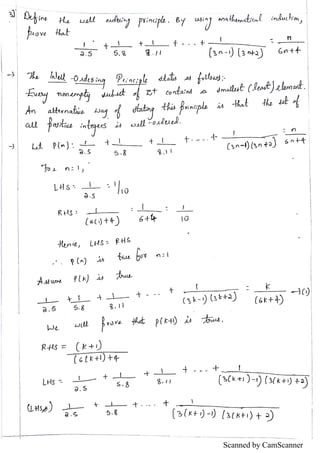 3) Define the well ordering principle. By using mathematical induction,
prove that
1/2.5 + 1/5.8 + 1/8.11 + - - - + 1/(3n-1)(3n+2) = n/6n+4
-> The Well-Ordering Principle states as follows:-
Every nonempty subset of Z+ contains a smallest (least) element.
An alternative way of stating this principle is that the set of
all positive integers is well-ordered.
-> Let P(n): 1/2.5 + 1/5.8 + 1/8.11 + - - - + 1/(3n-1)(3n+2) = n/6n+4
For n=1,
LHS = 1/2.5 = 1/10
RHS = 1/(6(1)+4) = 1/6+4 = 1/10
Hence, LHS = RHS
∴ P(n) is true for n=1
Assume P(k) is true.
1/2.5 + 1/5.8 + 1/8.11 + - - - + 1/(3k-1)(3k+2) = k/(6k+4) -(1)
We will prove that P(k+1) is true.
RHS = (k+1)/(6(k+1)+4
LHS = 1/2.5 + 1/5.8 + 1/8.11 + - - - + 1/(3(k+1)-1)(3(k+1)+2)
1/2.5 + 1/5.8 + - - - + 1/(3(k+1)-1)(3(k+1)+2)
Scanned by CamScanner